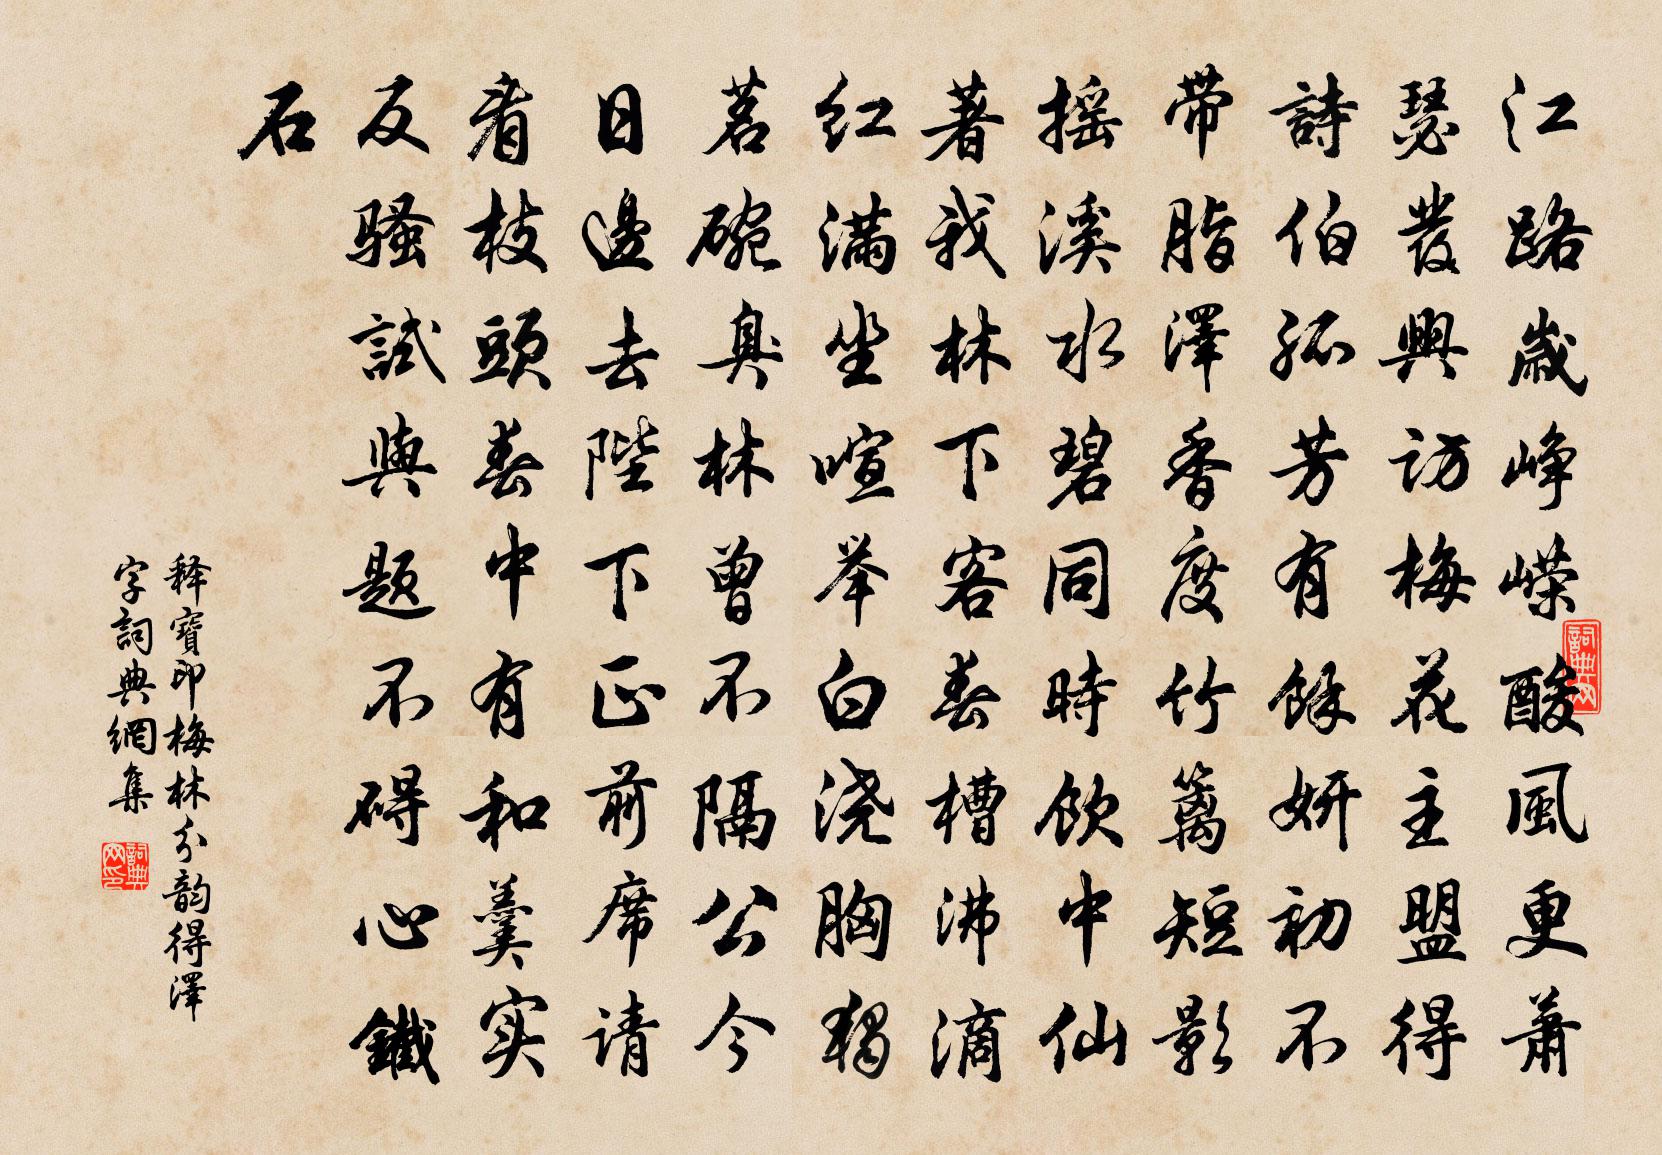 江路歲峥嵘酸風更萧
瑟發興访梅花主盟得
詩伯孤芳有餘妍初不
带脂澤香度竹篱短影
摇溪水碧同時飲中仙
著我林下客春槽沸滴
红满坐喧举白浇胸獨
茗碗臭林曾不隔公今
日邊去陛下正前席请
看枝頭春中有和羹实
反骚試與题不碍心鐵
石
释寶印梅林分韵得澤
字詞典網集
詞典网
詞典网印